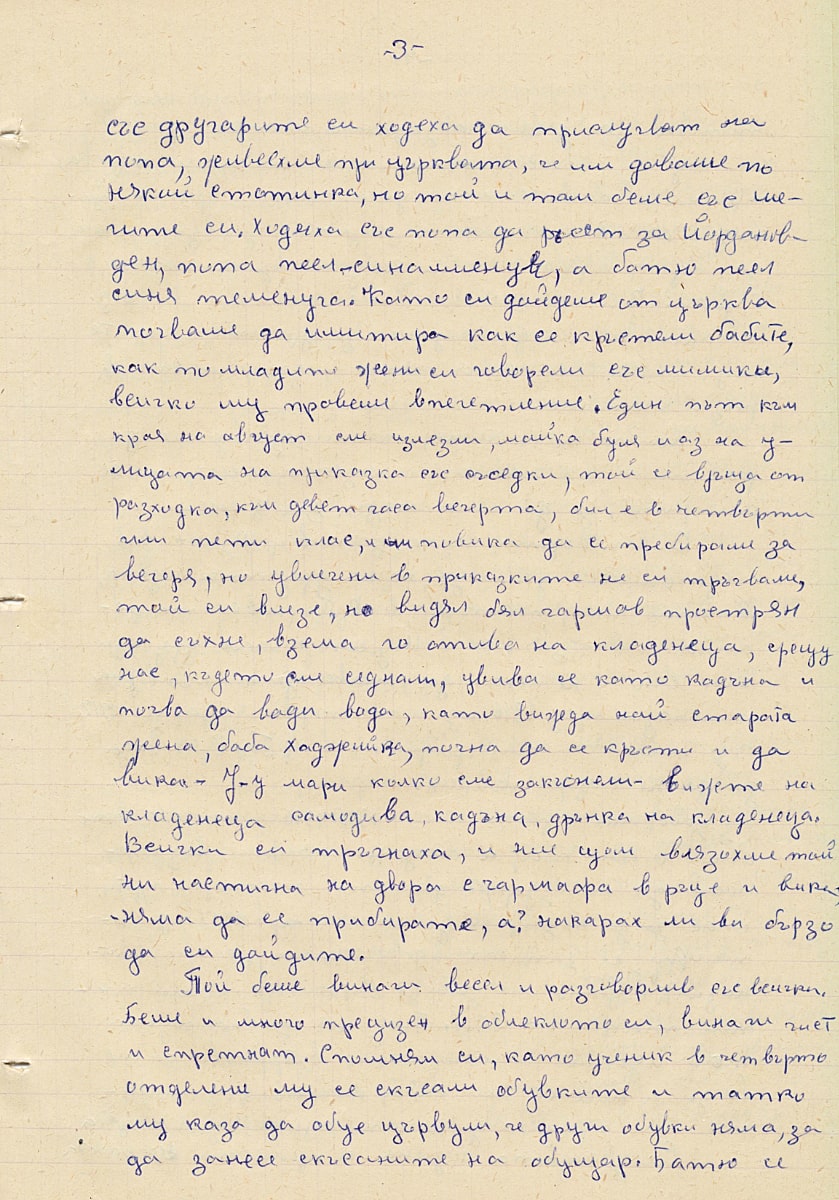 -3-
със другарите си ходеха да прислугват на
попа, живеехме при църквата, че им даваше по
някой стотинка, но той и там беше със ше-
гите си. Ходеха със попа да ръсят за Йорданов-
ден, попа пеел-, а батю пеел
синя теменуга. Като си дойдеше от църква
почваше да имитира как се кръстели бабите,
как по младите жени си говорели със мимики,
всичко му правеше впечетление. Един път към
края на август сме излезли, майка буля и аз на у-
лицата на приказка със съседки, той се връща от
разходка, към девет часа вечерта, бил е в четвърти
или пети клас, и ни повика да се пребираме за
вечеря, но увлечени в приказките не си тръгваме,
той си влезе, но видял бял чаршав прострян
да съхне, взема го отива на кладенеца, срещу
нас, където сме седнали, увива се като кадъна и
почва да вади вода, като вижда най старата
жена, баба Хаджийка, почна да се кръсти и да
вика - У-у мари колко сме закъснели - вижте на
кладенеца самодива, кадъна, дрънка на кладенеца.
Всички си тръгнаха, и ние щом влязохме той
ни настигна на двора с чаршафа в ръце и вика,
-няма да се прибирате, а? накарах ли ви бързо
да си дойдите.
Той беше винаги весел и разговорлив със всички.
Беше и много прецизен в облеклото си, винаги чист
и спретнат. Спомням си, като ученик в четвърто
отделение му се скъсали обувките и татко
му каза да обуе цървули, че други обувки няма, за
да занесе скъсаните на обущар. Батю се